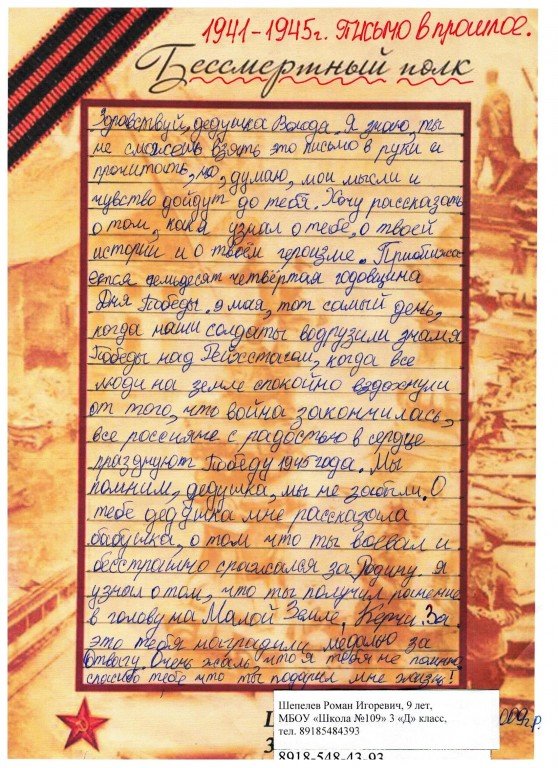 1941-1945г. Письмо в прошлое.
Бессмертный полк
Здравствуй, дедушка Володя. Я знаю, ты
не сможешь взять это письмо в руки и
прочитать, но, думаю, мои мысли и
чувство дойдут до тебя. Хочу рассказать
о том, как я узнал о тебе, о твоей
истории и о твоём героизме. Приближа
ется семьдесят четвёртая годовщина
Дня Победы. 9 мая, тот самый день,
когда наши солдаты водрузили знамя
Победы над Рейхстагом, когда все
люди на земле спокойно вздохнули
от того, что война закончилась,
все россияне с радостью в сердце
празднуют Победу 1945 года. Мы
помним, дедушка, мы не забыли. О
тебе дедушка мне рассказала
бабушка, о том что ты воевал и
бесстрашно сражался за Родину. Я
узнал о том, что ты получил ранение
в голову на Малой Земле, Керчи. За
это тебя наградили медалью за
Отвагу. Очень жаль что я тебя не помню,
спасибо тебе что ты подарил мне жизнь!
Шепелев Роман Игоревич, 9 лет,
МБОУ «Школа №109» 3 «Д» класс,
тел. 89185484393
8918-548-43-93